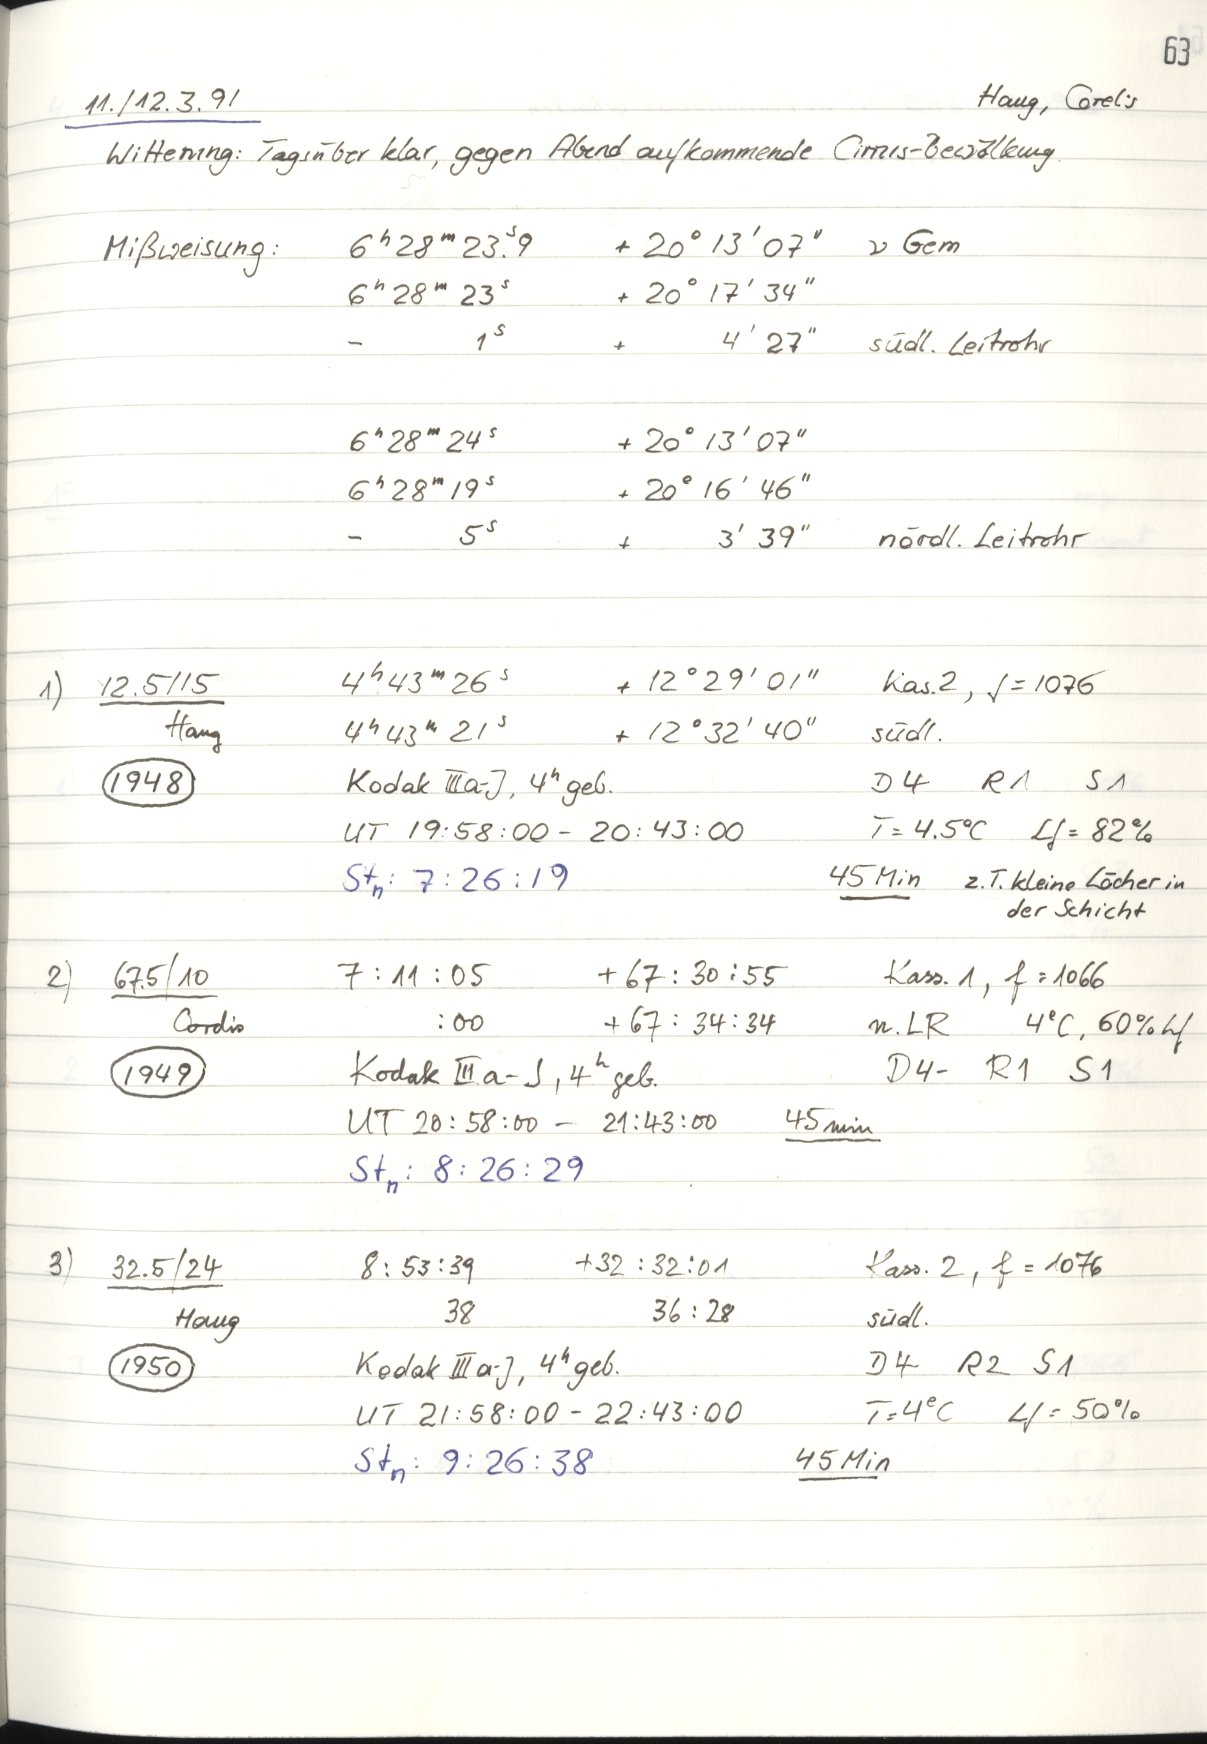 63
11./12.3.91 Haug, Cordis
Witterung: Tagsüber klar, gegen Abend aufkommende Cirrus-Bewölkung
Mißweisung: 6h 28m 23.s9 + 20° 13' 07" ν Gem
6h 28m 23s + 20° 17' 34"
- 1s + 4' 27" südl. Leitrohr
6h 28m 24s + 20° 13' 07"
6h 28m 19s + 20° 16' 46"
- 5s + 3' 39" nördl. Leitrohr
1) 12.5/15 4h 43m 26s + 12° 29' 01" Kas. 2, f = 1076
Haug 4h 43m 21s + 12° 32' 40" südl.
1948 Kodak IIIa-J, 4h geb. D4 R1 S1
UT 19:58:00 - 20:43:00 T = 4.5°C Lf = 82%
Stn: 7:26:19 45 Min z.T. kleine Löcher in
der Schicht
2) 67.5/10 7 : 11 : 05 + 67 : 30 : 55 Kass. 1, f = 1066
Cordis : 00 + 67 : 34 : 34 n. LR 4°C, 60% Lf
1949 Kodak III a - J, 4h geb. D4- R1 S1
UT 20:58:00 - 21:43:00 45 min
Stn: 8:26:29
3) 32.5/24 8 : 53 : 39 +32 : 32 : 01 Kass. 2, f = 1076
Haug 38 36 : 28 südl.
1950 Kodak IIIa-J, 4h geb. D4 R2 S1
UT 21:58:00 - 22:43:00 T = 4°C Lf = 50%
Stn: 9:26:38 45 Min